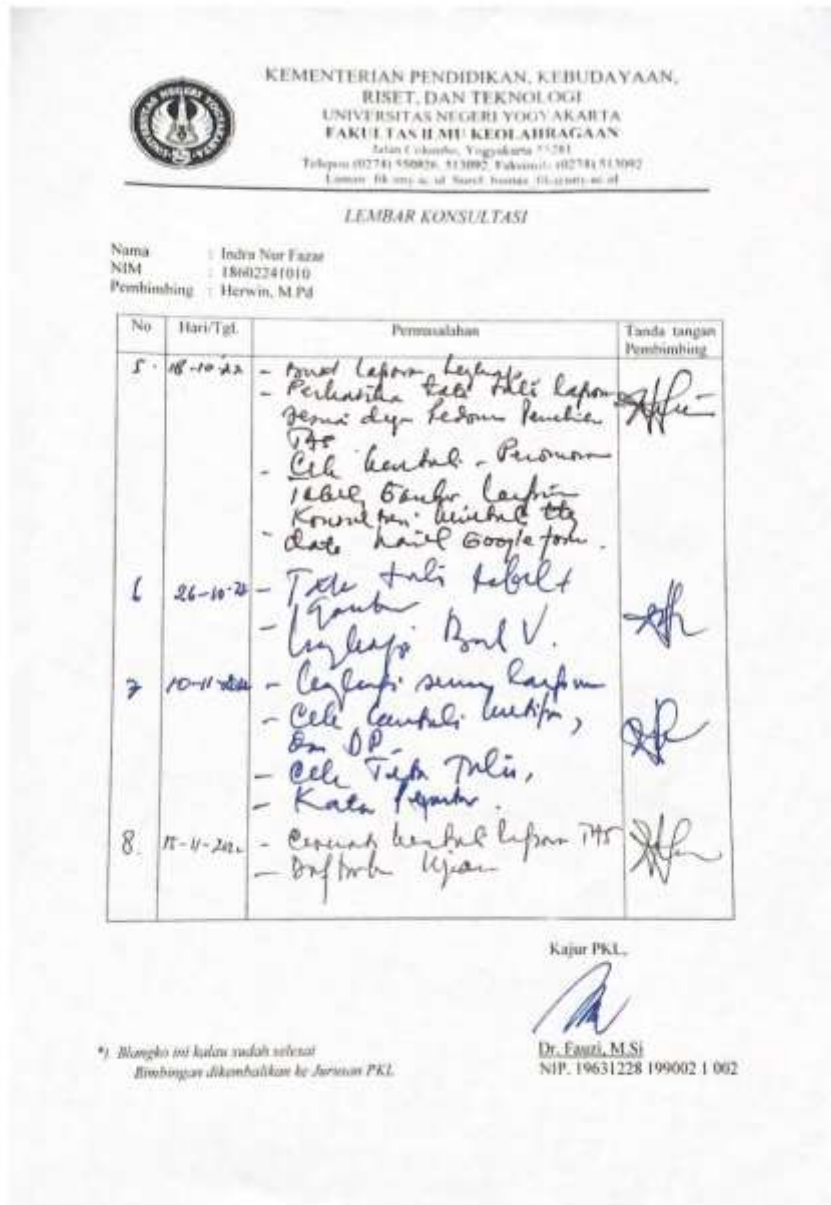 KEMENTERIAN PENDIDIKAN, KEBUDAYAAN,
RISET, DAN TEKNOLOGI
UNIVERSITAS NEGERI YOGYAKARTA
FAKULTAS ILMU KEOLAHRAGAAN
Jalan Colombo, Yogyakarta 55281
Telepon (0274) 550826, 513092, Faksimili (0274) 513092
LEMBAR KONSULTASI
Nama : Indra Nur Fazar
NIM : 18602241010
Pembimbing : Herwin, M.Pd
No Hari/Tgl. Permasalahan Tanda tangan
Pembimbing
5. 18-10-22 - Buat laporan
- Perhatikan tata tulis laporan
sesuai dgn Pedoman
TAS
- Cek kembali - Penomoran
Tabel, Gambar
-
data hasil Google form.
6 26-10-22 - Tata tulis tabel +
gambar
- Lengkapi Bab V.
7 10-11-2022 - Lengkapi semua
- Cek kembali kutipan,
dan DP.
- Cek Tata Tulis,
- Kata Pengantar.
8. 15-11-2022 - kembali laporan TAS
- Daftar Ujian
Kajur PKL,
Dr. Fauzi, M.Si
NIP. 19631228 199002 1 002
*). Blangko ini kalau sudah selesai
Bimbingan dikembalikan ke Jurusan PKL